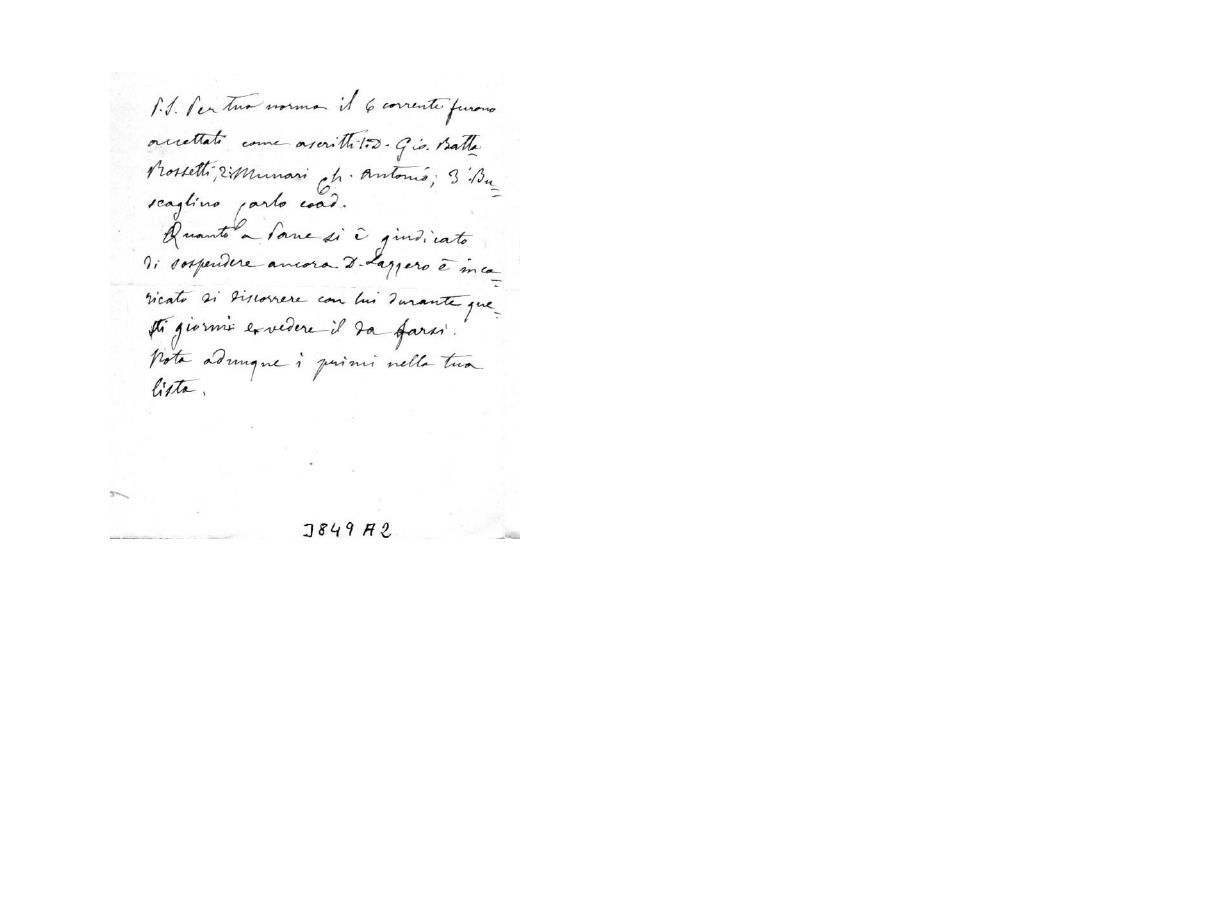 P.S. Per tua norma il 6 corrente furono
accettati come ascritti 1º D. Gio. Batta
Rossetti, 2º Munari Ch. Antonio; 3º Bu=
scaglino Carlo coad.
Quanto a Pane si è giudicato
di sospendere ancora D. Lazzero è inca=
ricato di discorrere con lui durante que=
sti giorni e vedere il da farsi.
Nota adunque i primi nella tua
lista.
3849 A2